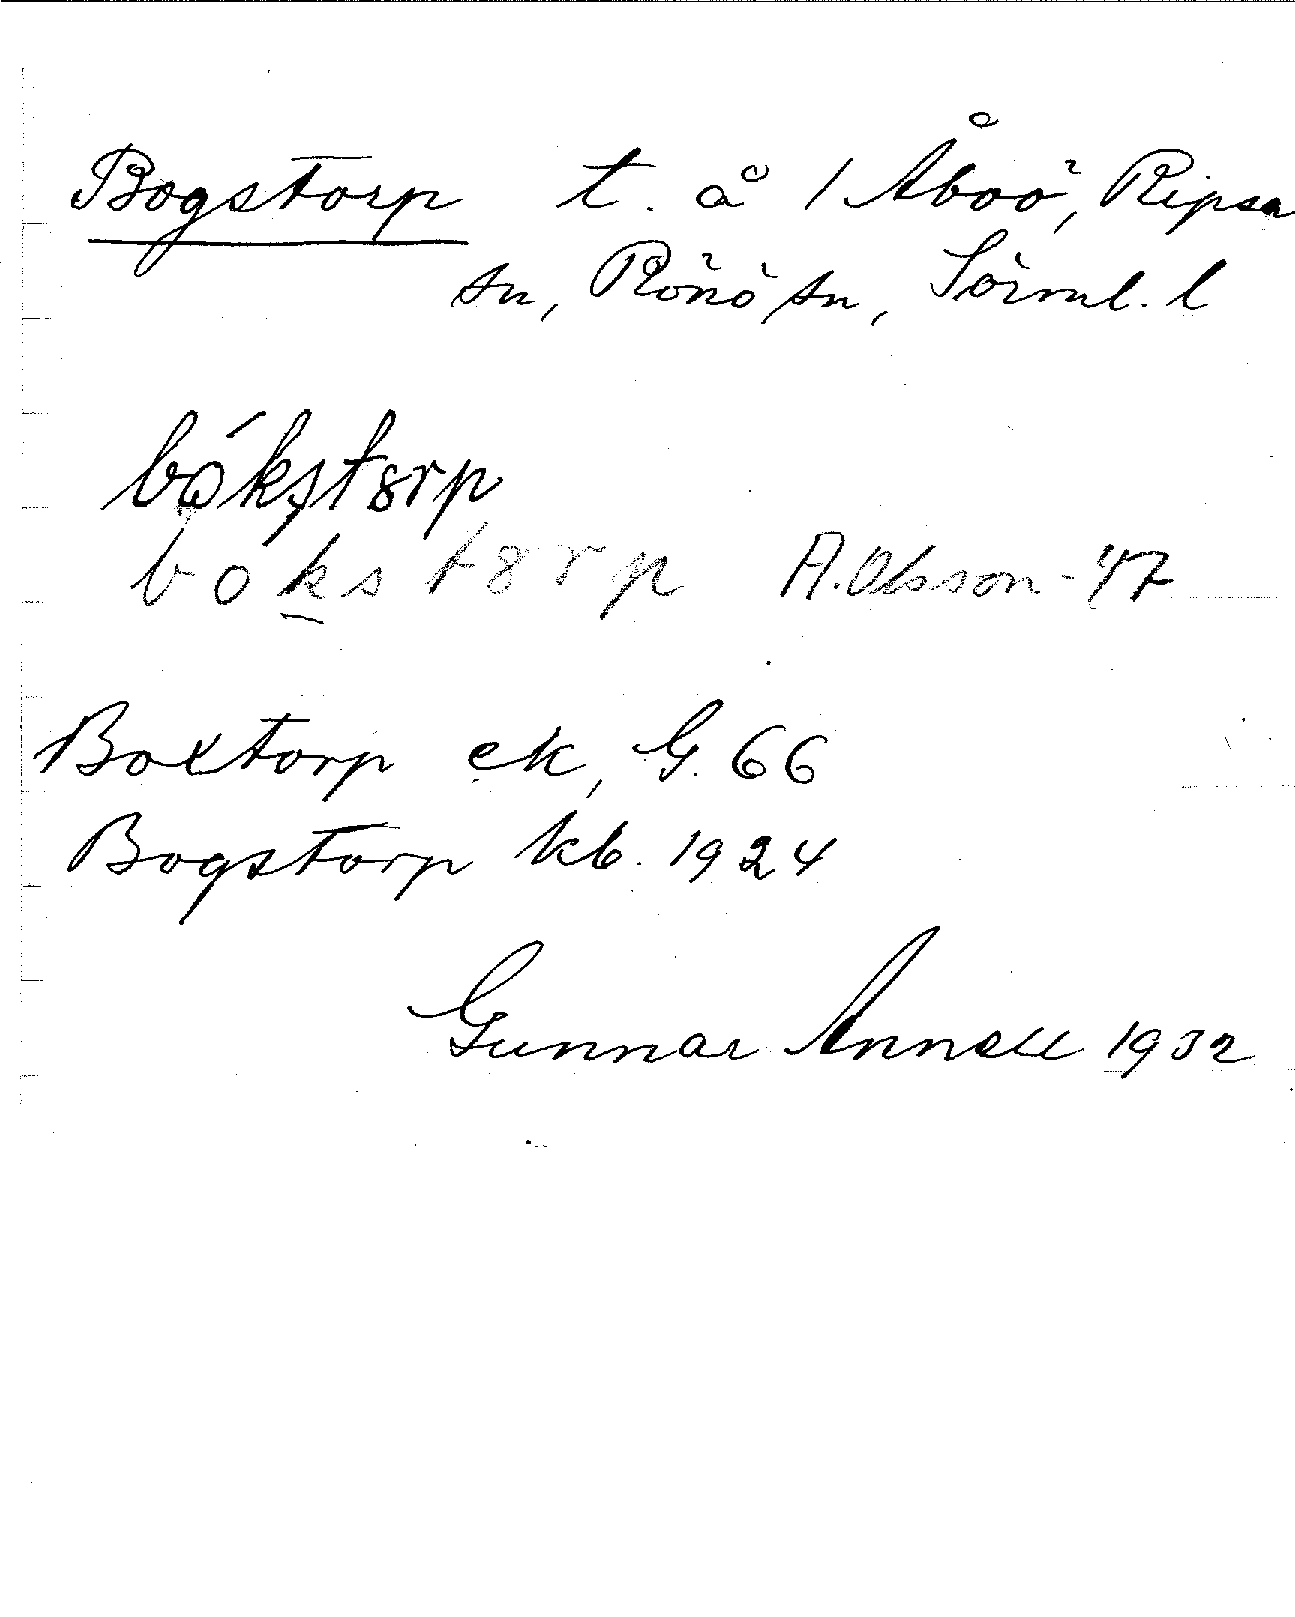 Bogstorp t. å / Åboö, Ripsa
sn, Rönö sn, Sörml. l
bókstȣrp
bokstȣrp A. Olsson -47
Boxtorp ek, G. 66
Bogstorp kb. 1924
Gunnar Annell 1932